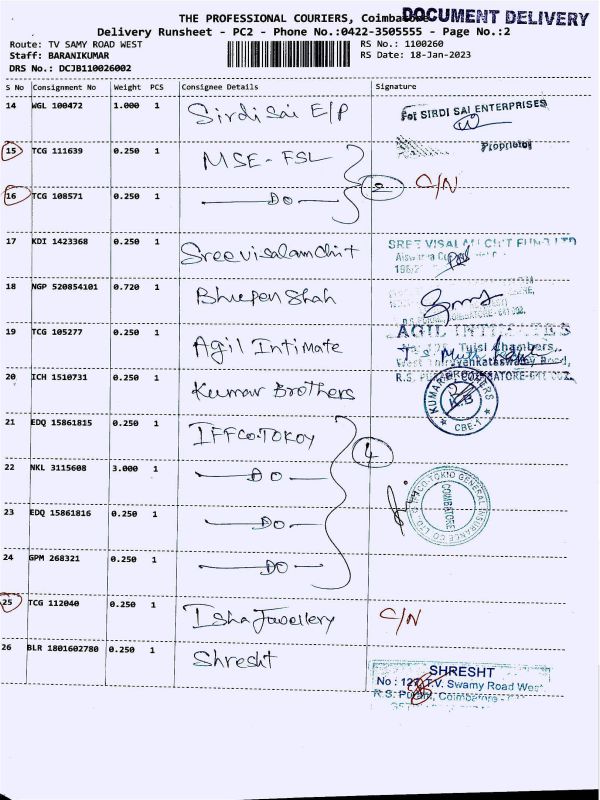 THE PROFESSIONAL COURIERS, Coimbatore
DOCUMENT DELIVERY
Delivery Runsheet - PC2 - Phone No.:0422-3505555 - Page No.:2
Route: TV SAMY ROAD WEST
RS No.: 1100260
Staff: BARANIKUMAR
RS Date: 18-Jan-2023
DRS No.: DCJB110026002
S No Consignment No Weight PCS Consignee Details Signature
14 WGL 100472 1.000 1 Sirdi Sai E/P For SIRDI SAI ENTERPRISES
Proprietor
15 TCG 111639 0.250 1 MSE-FSL
2 C/N
16 TCG 108571 0.250 1 —DO—
17 KDI 1423368 0.250 1 Sreevisalamchit SREE VISALAM CHIT FUND LTD
18 NGP 520854101 0.720 1 Bhupen Shah
19 TCG 105277 0.250 1 Agil Intimate AGIL INTIMATES
Tulsi Chambers,
West Thiruvenkataswamy Road,
20 ICH 1510731 0.250 1 Kumar Brothers KUMAR BROTHERS K.B CBE-1
21 EDQ 15861815 0.250 1 IFFCO-TOKOY
4
22 NKL 3115608 3.000 1 —DO—
IFFCO-TOKIO GENERAL INSURANCE CO LTD COIMBATORE
23 EDQ 15861816 0.250 1 —DO—
24 GPM 268321 0.250 1 —DO—
25 TCG 112040 0.250 1 Isha Jwellery C/N
26 BLR 1801602780 0.250 1 Shresht SHRESHT
No : 127, T.V. Swamy Road West
R.S. Puram, Coimbatore